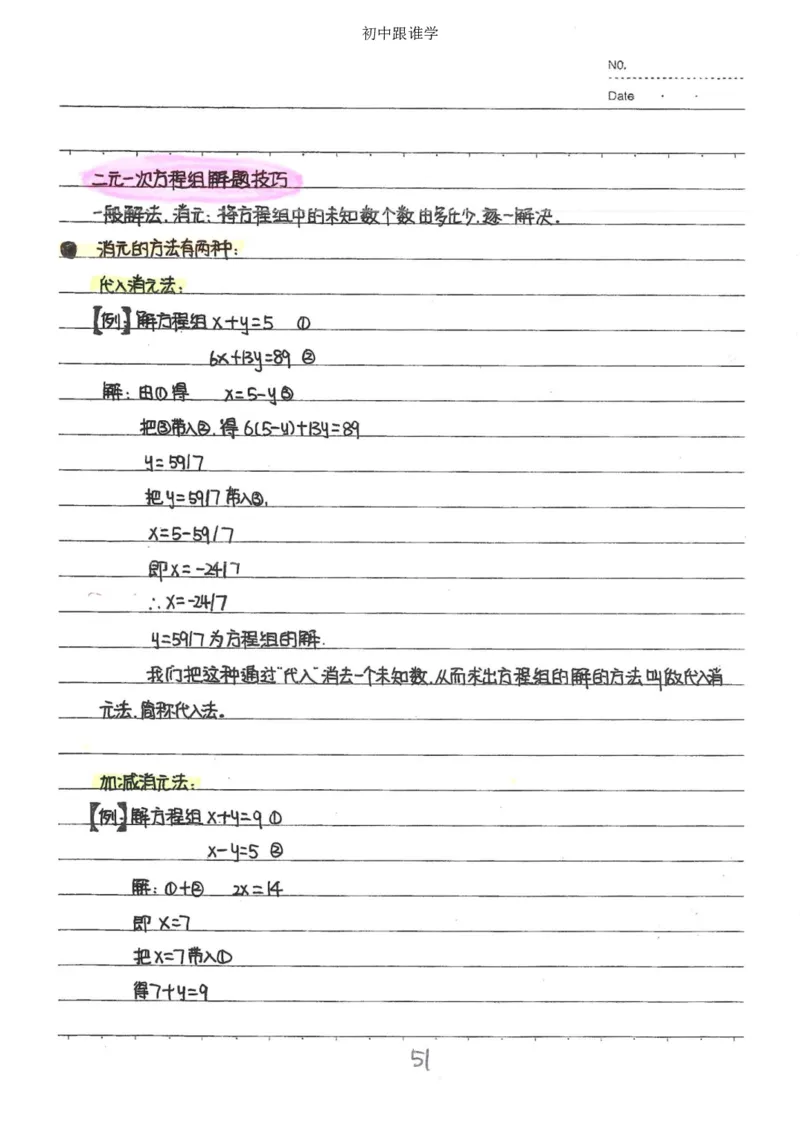 初中跟谁学
NO.
Date
二元一次方程组解题技巧
一般解法,消元:将方程组中的未知数个数由多化少,逐一解决.
消元的方法有两种:
代入消元法:
【例:】解方程组 x+y=5 ①
6x+13y=89 ②
解:由①得 x=5-y③
把③带入②,得 6(5-y)+13y=89
y=59/7
把y=59/7带入③,
x=5-59/7
即x=-24/7
∴x=-24/7
y=59/7为方程组的解.
我们把这种通过"代入"消去一个未知数,从而求出方程组的解的方法叫做代入消
元法,简称代入法。
加减消元法:
【例:】解方程组x+y=9 ①
x-y=5 ②
解:①+② 2x=14
即 x=7
把x=7带入①
得7+y=9
51